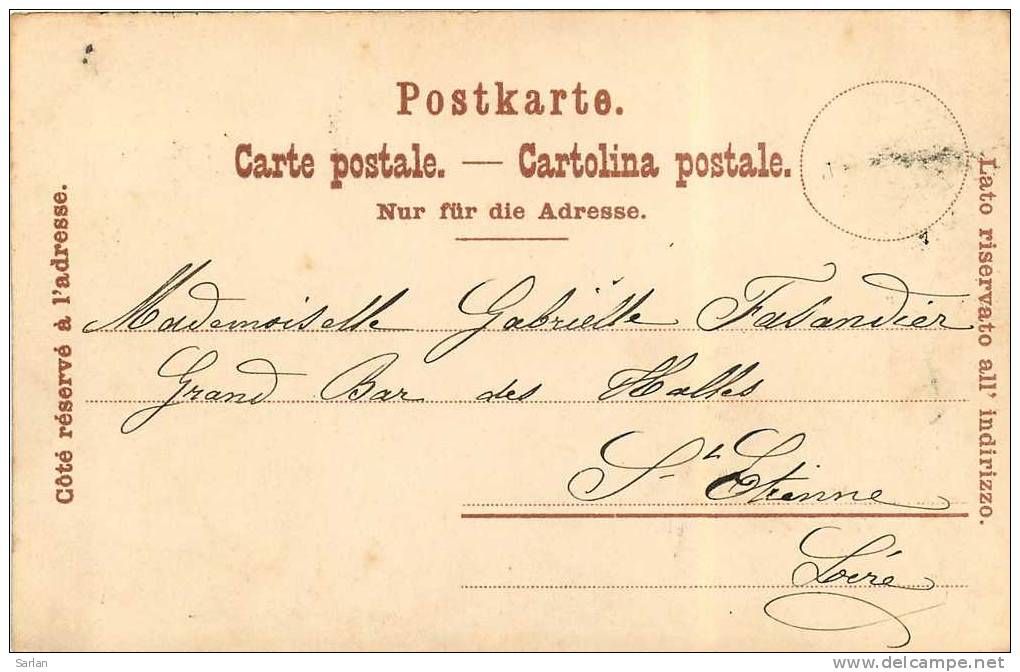 Postkarte.
Carte postale. — Cartolina postale.
Nur für die Adresse.
Côté réservé à l'adresse.
Lato riservato all' indirizzo.
Mademoiselle Gabriëlle Fasandier
Grand Bar des Halles
St Etienne
Loire
Sarlan
www.delcampe.net